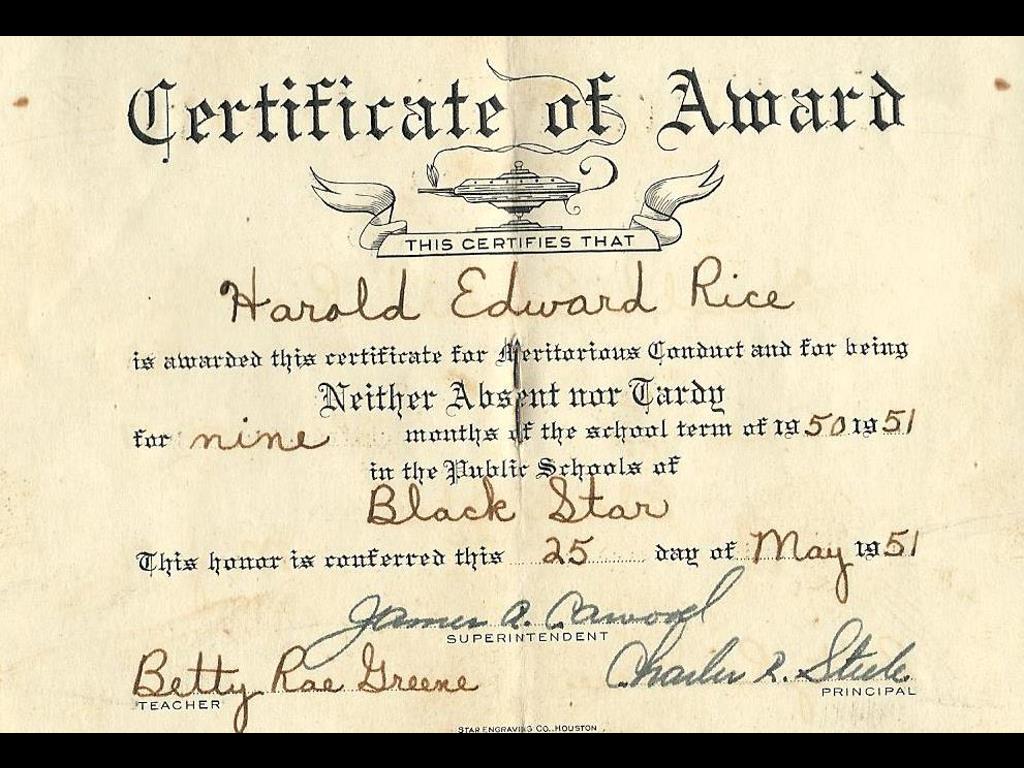 Certificate of Award
THIS CERTIFIES THAT
Harold Edward Rice
is awarded this certificate for Meritorious Conduct and for being
Neither Absent nor Tardy
for nine months of the school term of 1950 1951
in the Public Schools of
Black Star
This honor is conferred this 25 day of May 1951
James A. Cawood
SUPERINTENDENT
Betty Rae Greene Charles R. Steele
TEACHER PRINCIPAL
STAR ENGRAVING CO., HOUSTON